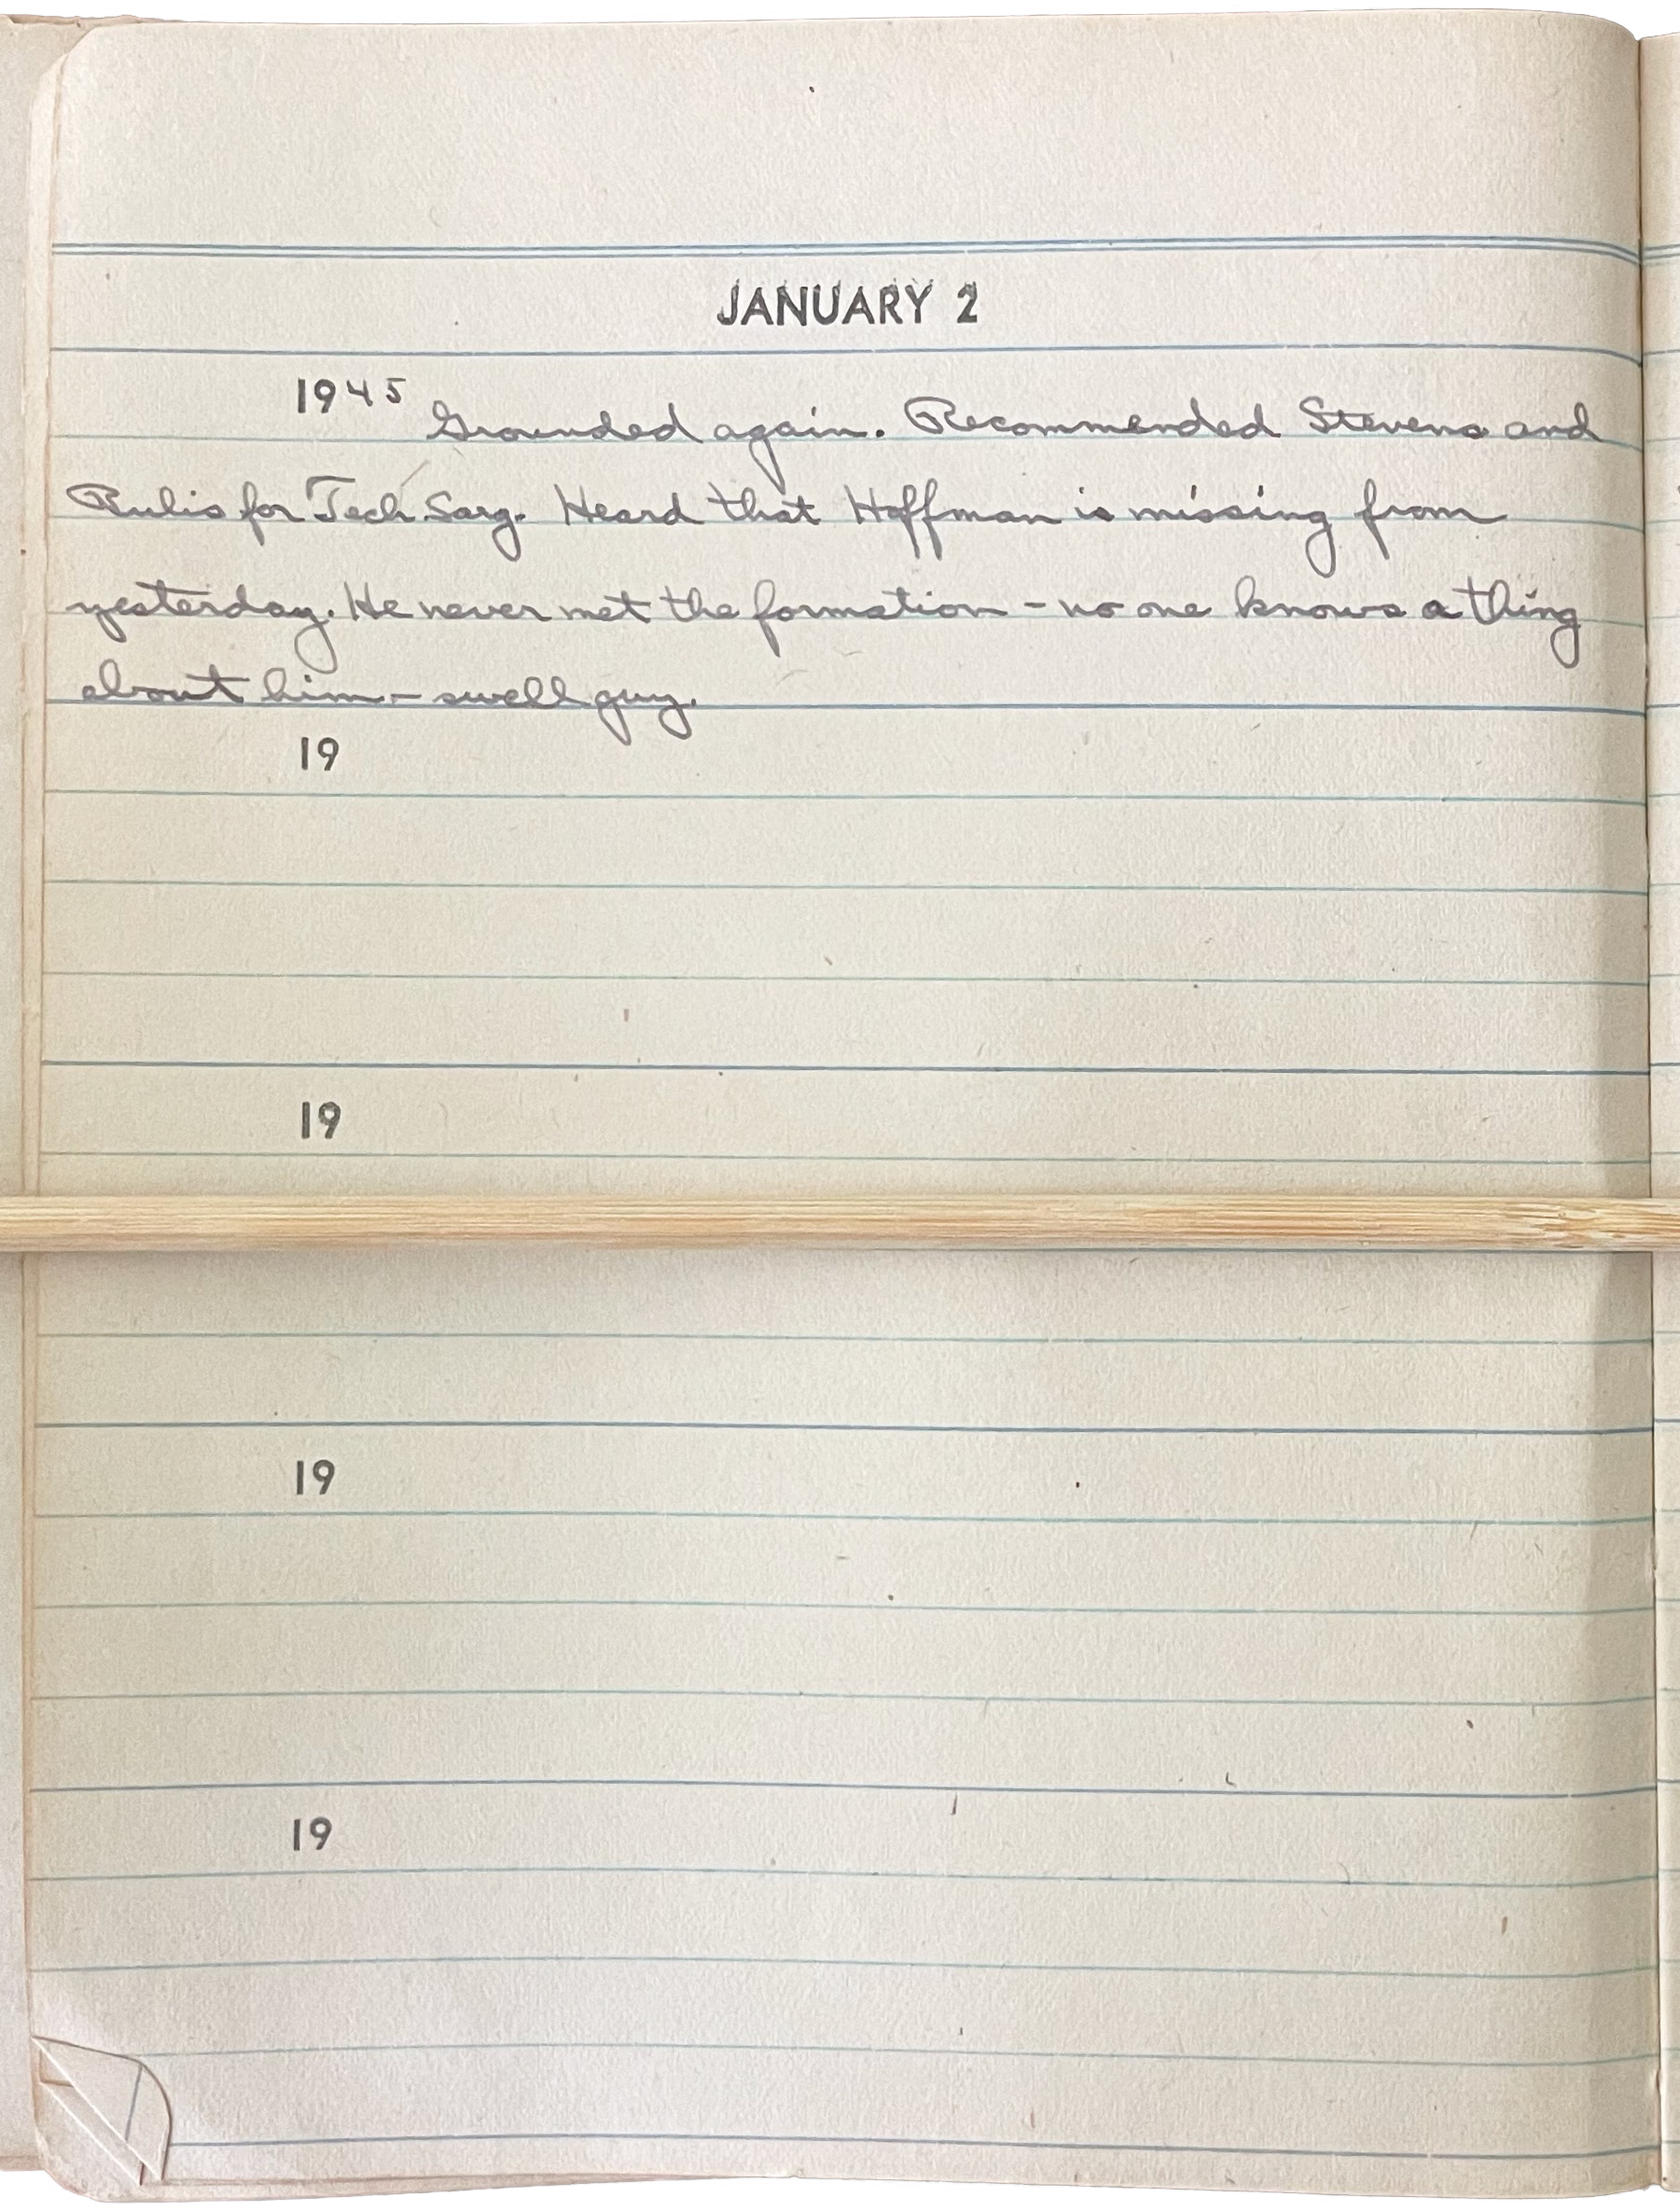 JANUARY 2
1945 Grounded again. Recommended Stevens and
Rulis for Tech Sarg. Heard that Hoffman is missing from
yesterday. He never met the formation - no one knows a thing
about him - swell guy.
19
19
19
19